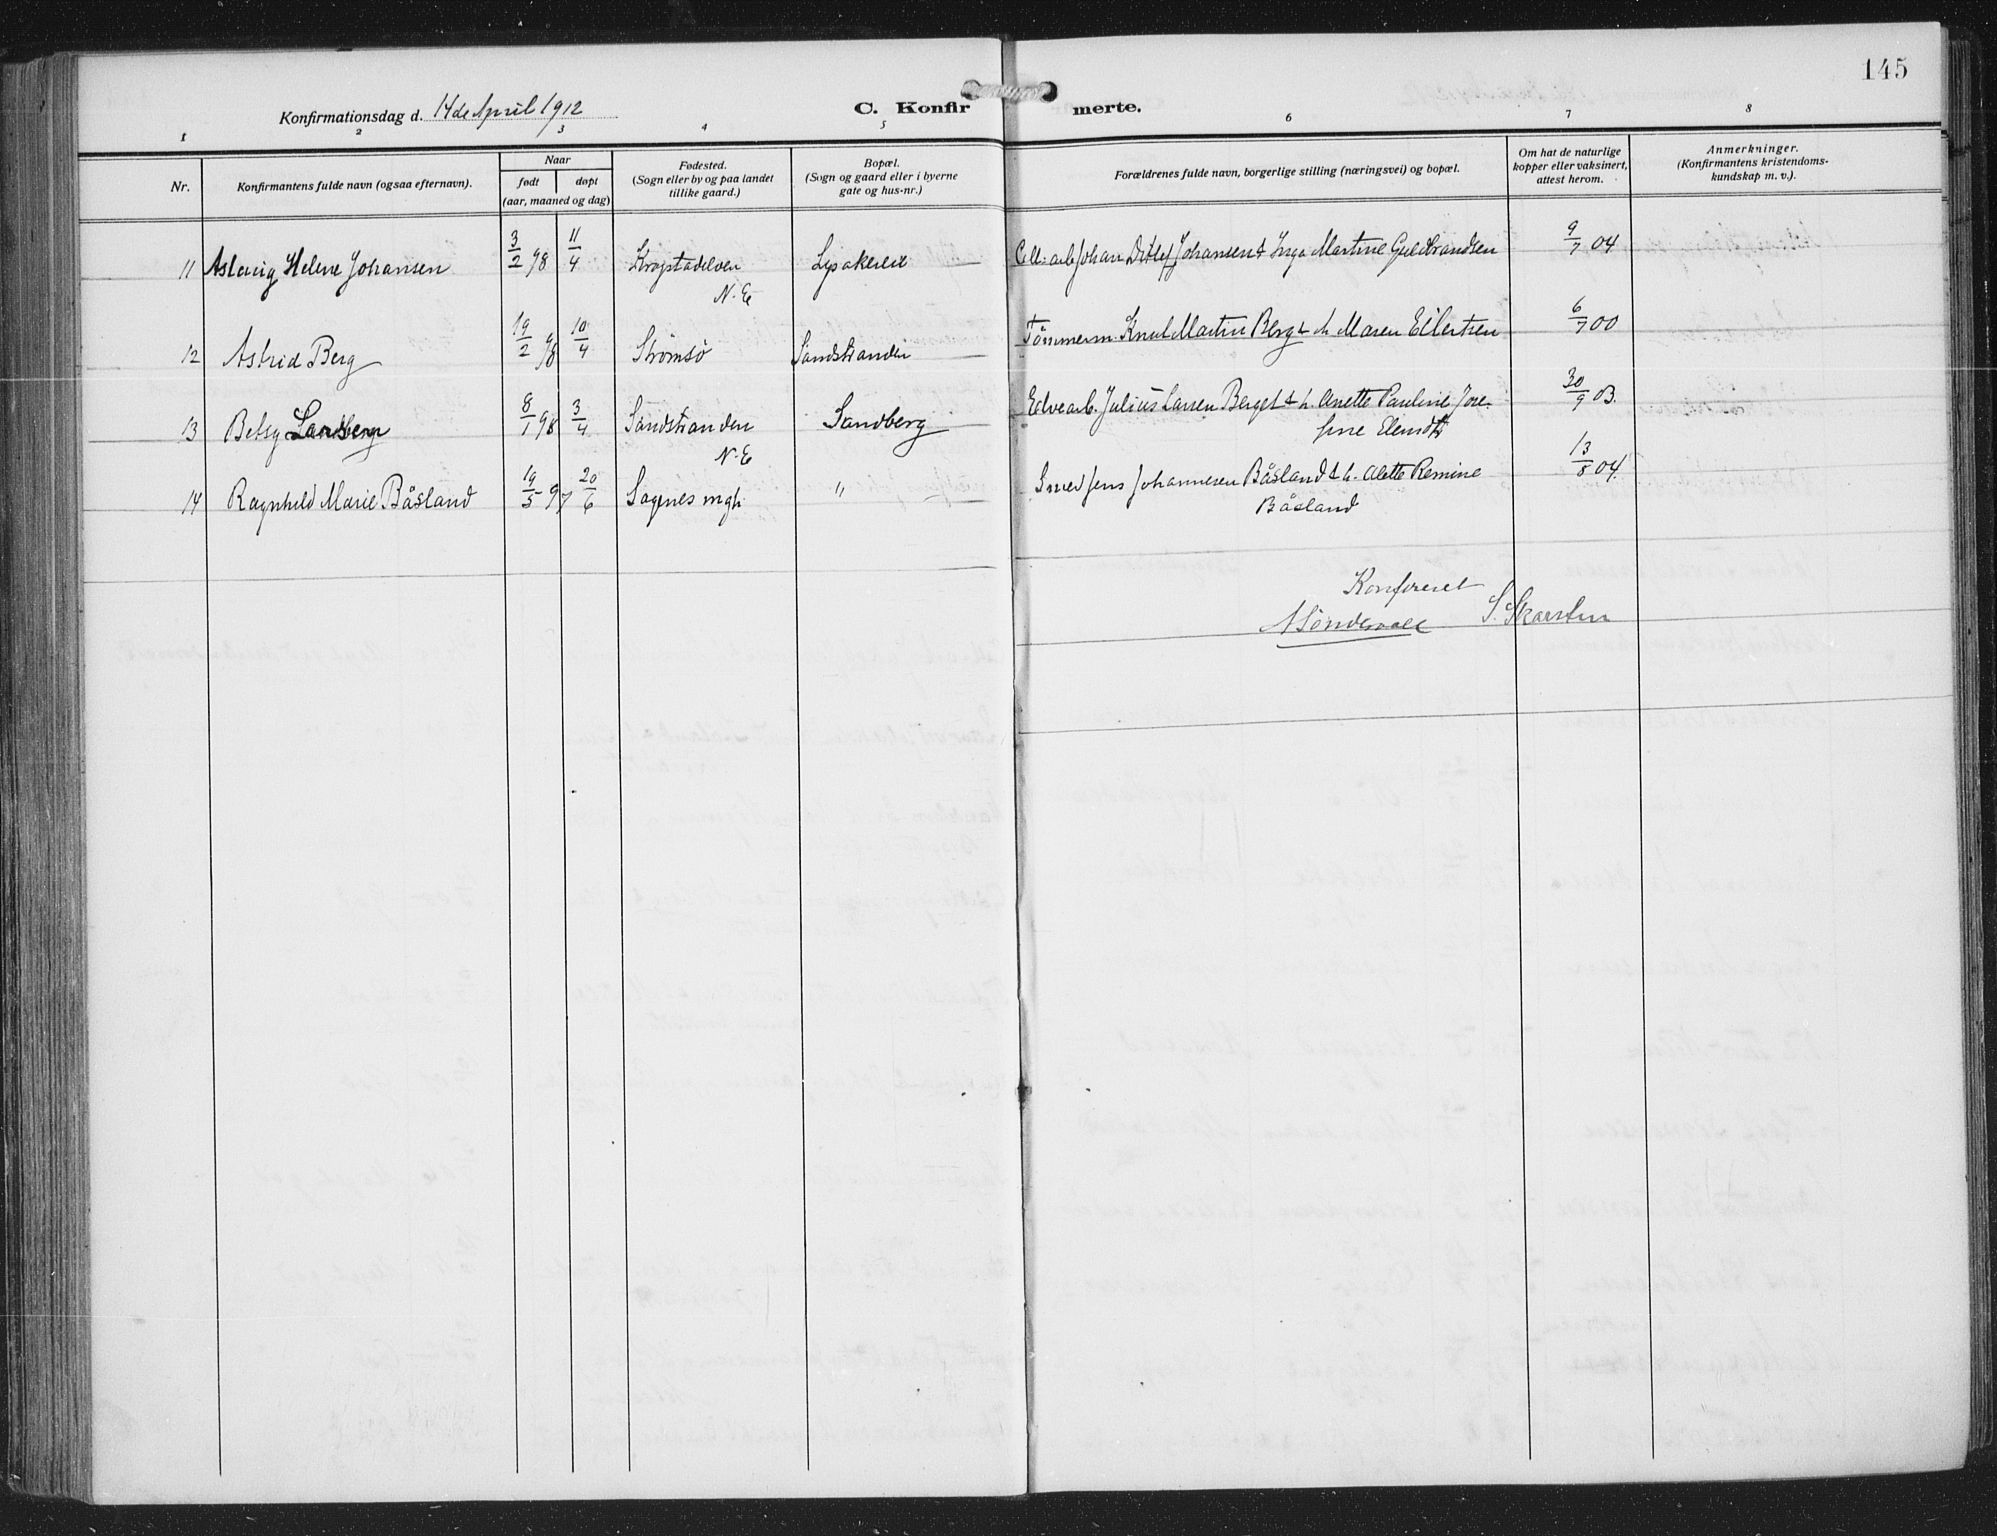 145
Konfirmationsdag d. 14de April 1912
C. Konfir merte.
1 2 3 4 5 6 7 8
Nr.
Konfirmantens fulde navn (ogsaa efternavn).
Naar
født døpt
(aar, maaned og dag)
Fødested.
(Sogn eller by og paa landet
tillike gaard.)
Bopæl.
(Sogn og gaard eller i byerne
gate og hus-nr.)
Forældrenes fulde navn, borgerlige stilling (næringsvei) og bopæl.
Om hat de naturlige
kopper eller vaksinert,
attest herom.
Anmerkninger.
(Konfirmantens kristendoms-
kundskap m. v.).
11 Aslaug Helene Johansen 3/2 98 11/4 Krogstadelven Cell. arb. Johan Ditlef Johansen & Inga Martine Guldbrandsen 9/7 04
N. E
12 Astrid Berg 19/2 98 10/4 Strömsö Sandstranden Tömmerm. Knut Martin Berg & h. Maren Eilertsen 6/7 00
13 Betsy 8/1 98 3/4 Sandstranden Sandberg Elvearb. Julius Larsen Berget & h. Anette Pauline Jose-
fine 30/9 03.
N. E
14 Ragnhild Marie Båsland 19/5 97 20/6 Sognes mgh. " Smed Jens Johannesen Båsland & h. Alette Remine
Båsland 13/8 04.
Konfereret
S. Skarsten